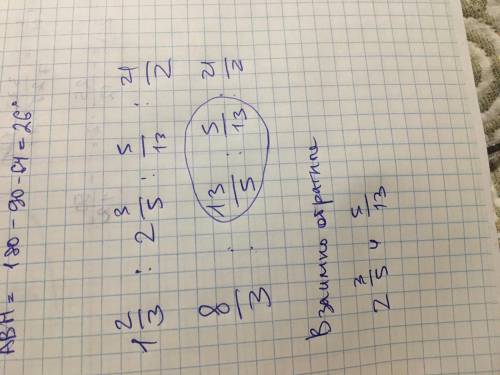 ABH = 180 - 90 - 64 = 26°
1 2/3 : 2 3/5 : 5/13 : 21/2
8/3 : 13/5 : 5/13 : 21/2
Взаимно обратные
2 3/5 и 5/13